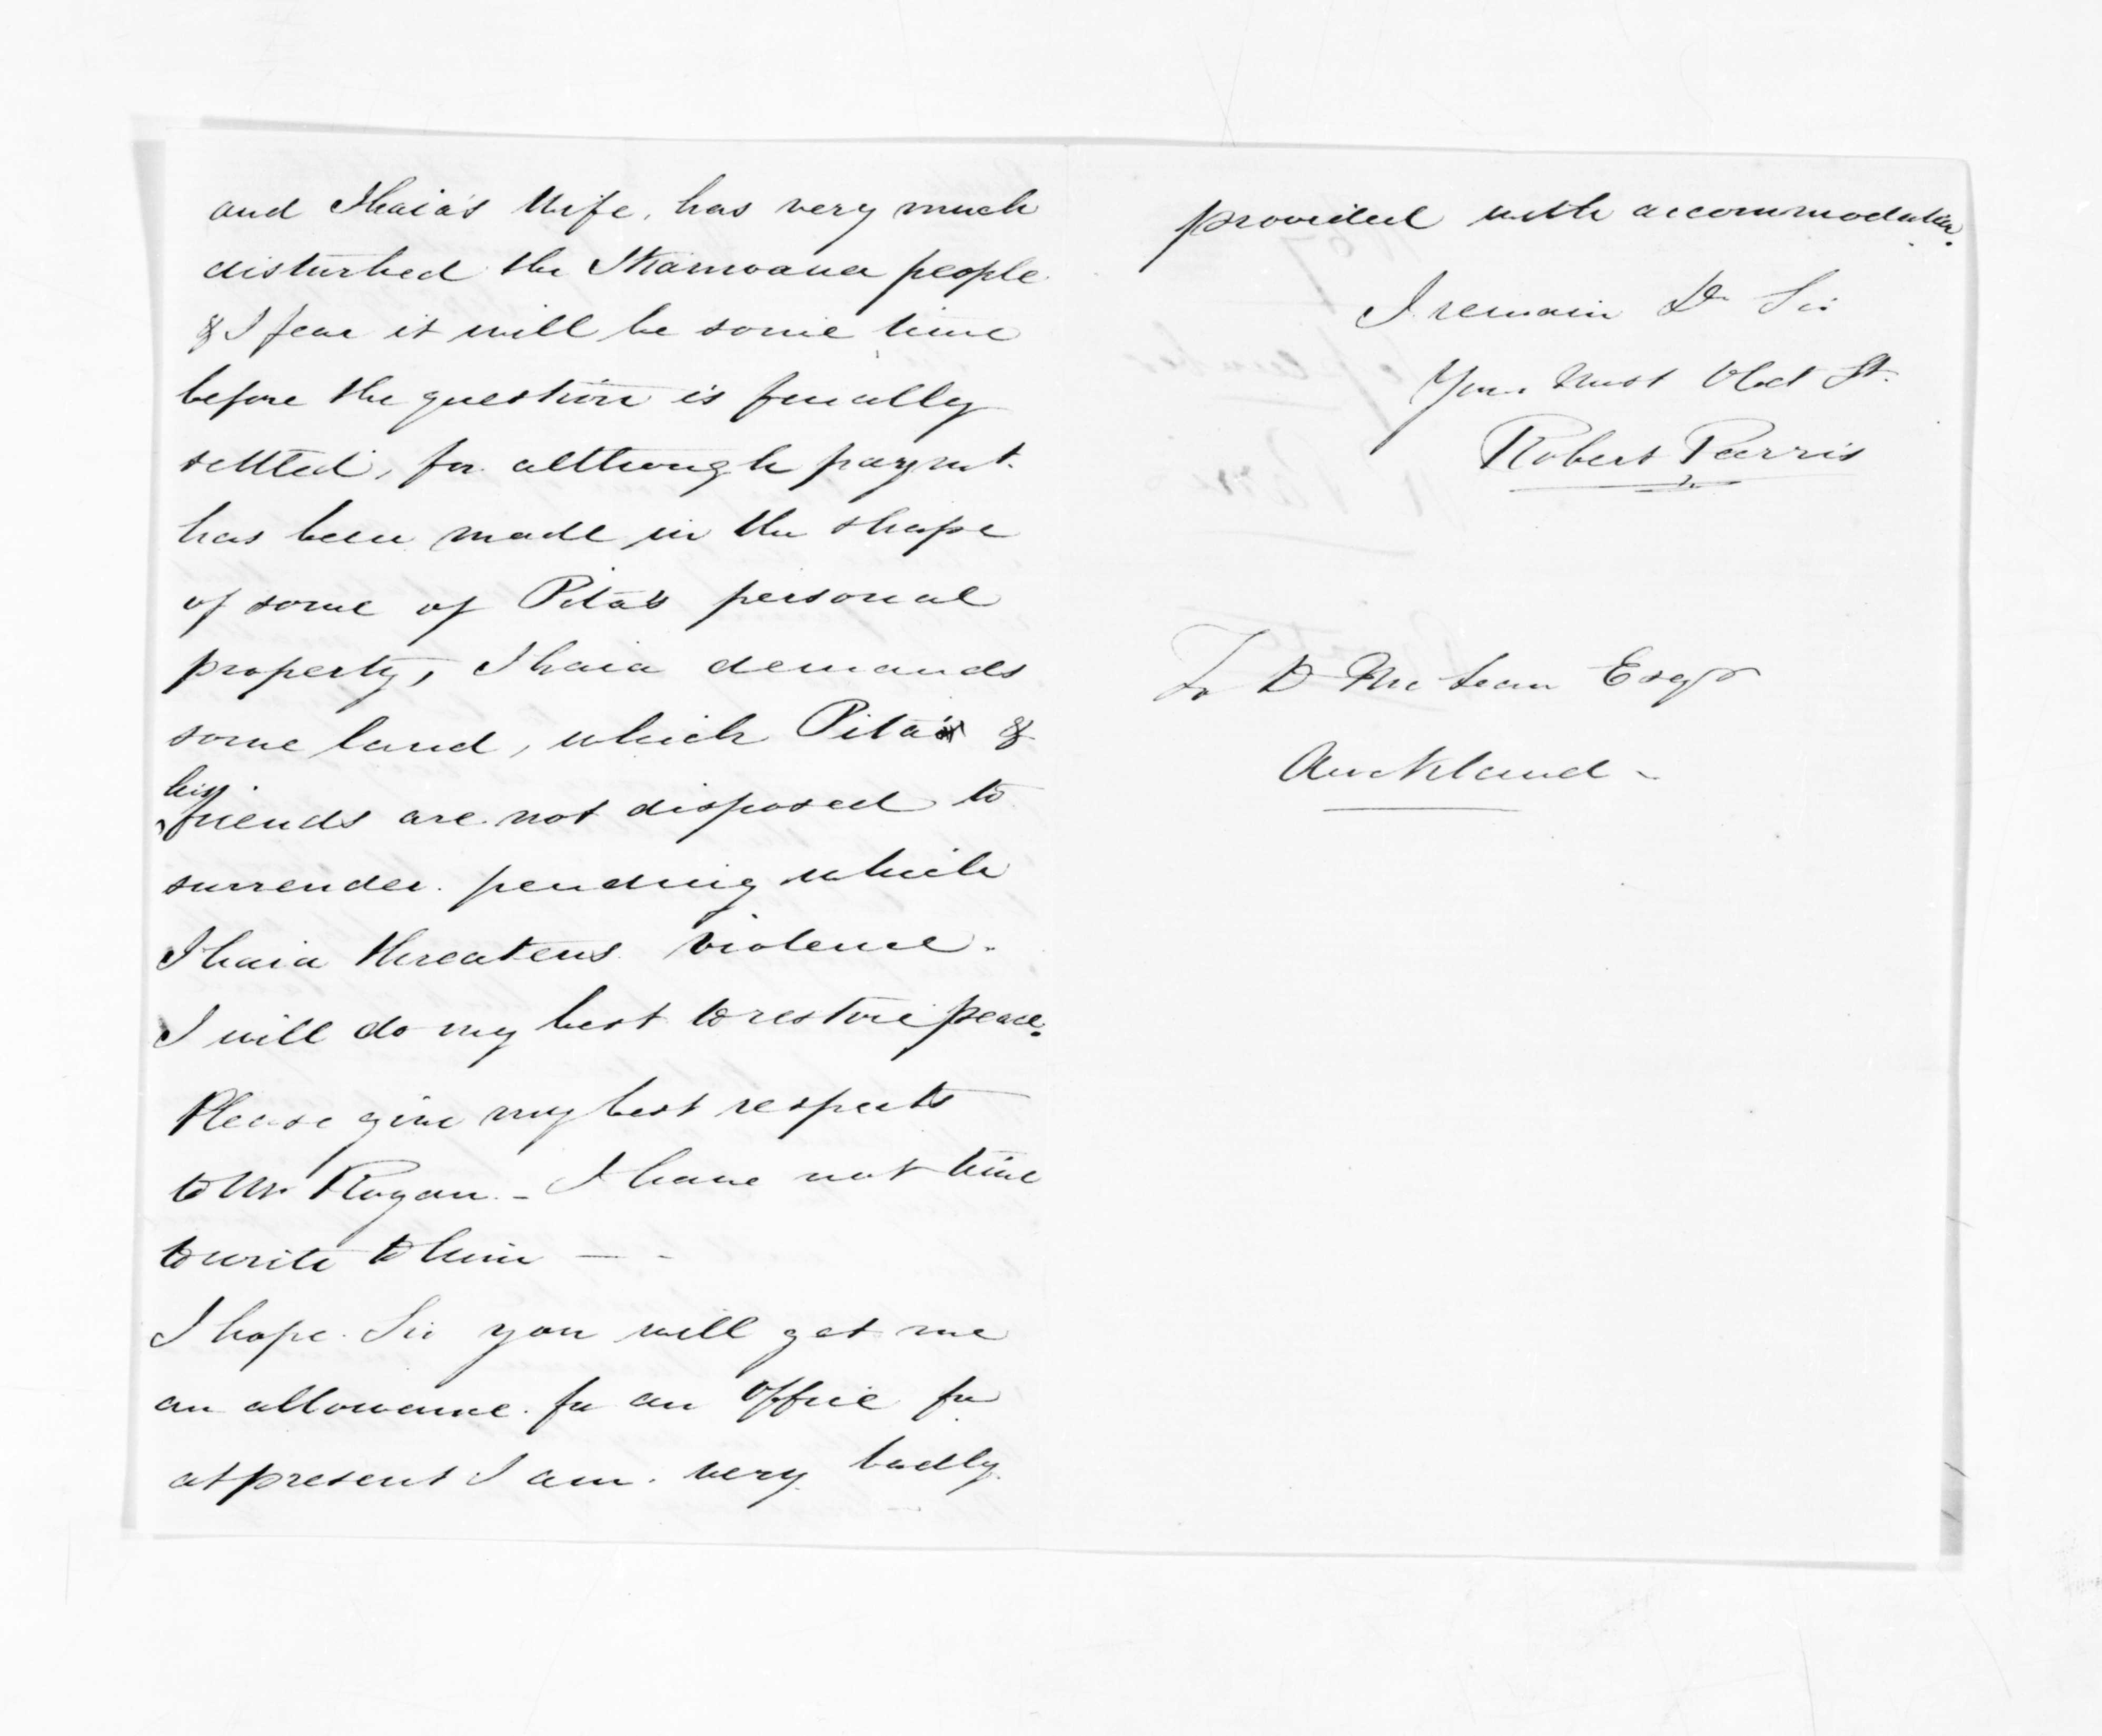 and Ihaia's Wife, has very much
disturbed the people
& I fear it will be some time
before the question is finally
settled, for although paymt.
has been made in the shape
of some of Pita's personal
property, Ihaia demands
some land, which Pita &
his
friends are not disposed to
surrender. pending which
Ihaia threatens violence.
I will do my best to restore peace.
Please give my best respects
to Mr Rogan. - I have not time
to write to him — -
I hope Sir you will get me
an allowance for an Office for
at present I am very badly
provided with accommodation.
I remain Dr Sir
Your Most Obdt St.
Robert Parris
To D McLean Esqr
Auckland -